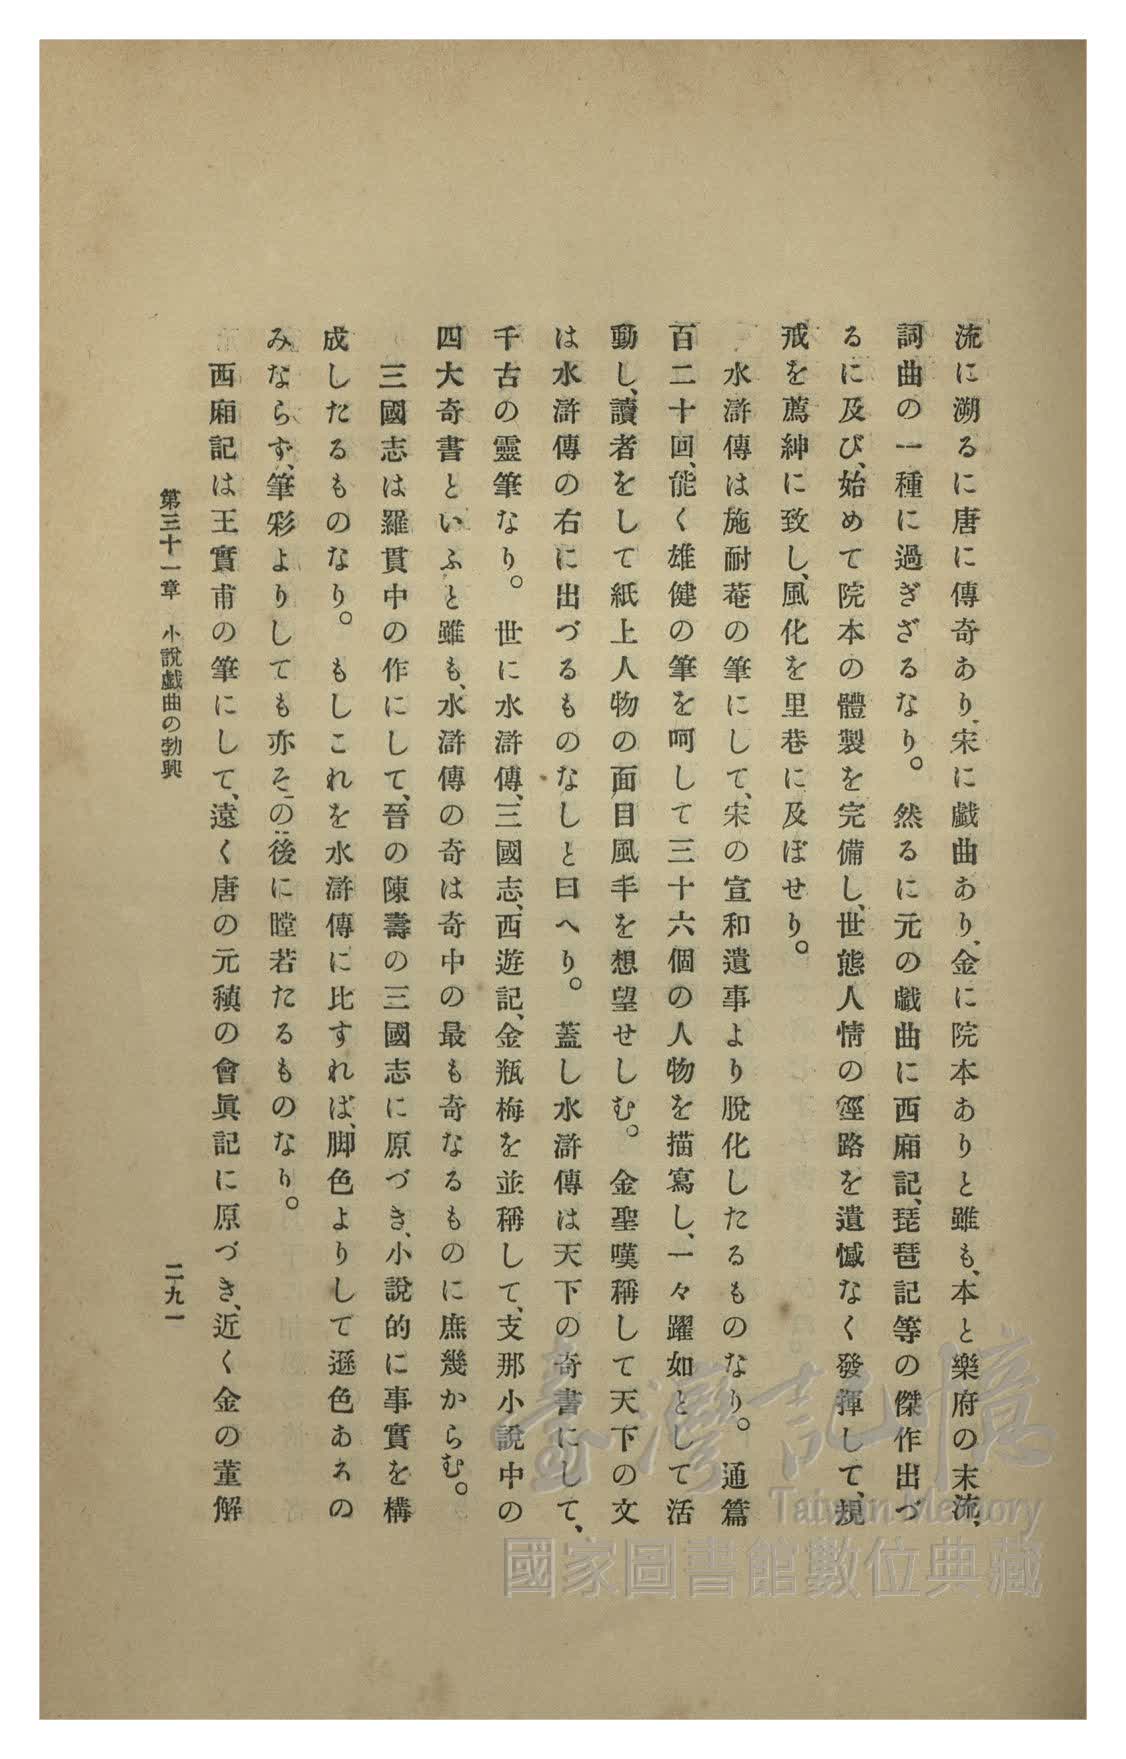 流に溯るに唐に傳奇あり、宋に戲曲あり、金に院本ありと雖も、本と樂府の末流、
詞曲の一種に過ぎざるなり。然るに元の戲曲に西廂記、琵琶記等の傑作出づ
るに及び、始めて院本の體製を完備し、世態人情の徑路を遺憾なく發揮して、規
戒を薦紳に致し、風化を里巷に及ぼせり。
水滸傳は施耐菴の筆にして、宋の宣和遺事より脫化したるものなり。通篇
百二十回、能く雄健の筆を呵して三十六個の人物を描寫し、一々躍如として活
動し、讀者をして紙上人物の面目風丰を想望せしむ。金聖嘆稱して天下の文
は水滸傳の右に出づるものなしと曰へり。蓋し水滸傳は天下の奇書にして、
千古の靈筆なり。世に水滸傳、三國志、西遊記、金瓶梅を並稱して、支那小說中の
四大奇書といふと雖も、水滸傳の奇は奇中の最も奇なるものに庶幾からむ。
三國志は羅貫中の作にして、晉の陳壽の三國志に原づき、小說的に事實を構
成したるものなり。もしこれを水滸傳に比すれば、脚色よりして遜色あるの
みならず、筆彩よりしても亦その後に瞠若たるものなり。
西廂記は王實甫の筆にして、遠く唐の元稹の會眞記に原づき、近く金の董解
第三十一章 小說戲曲の勃興
二九一
臺灣記憶
Taiwan Memory
國家圖書館數位典藏